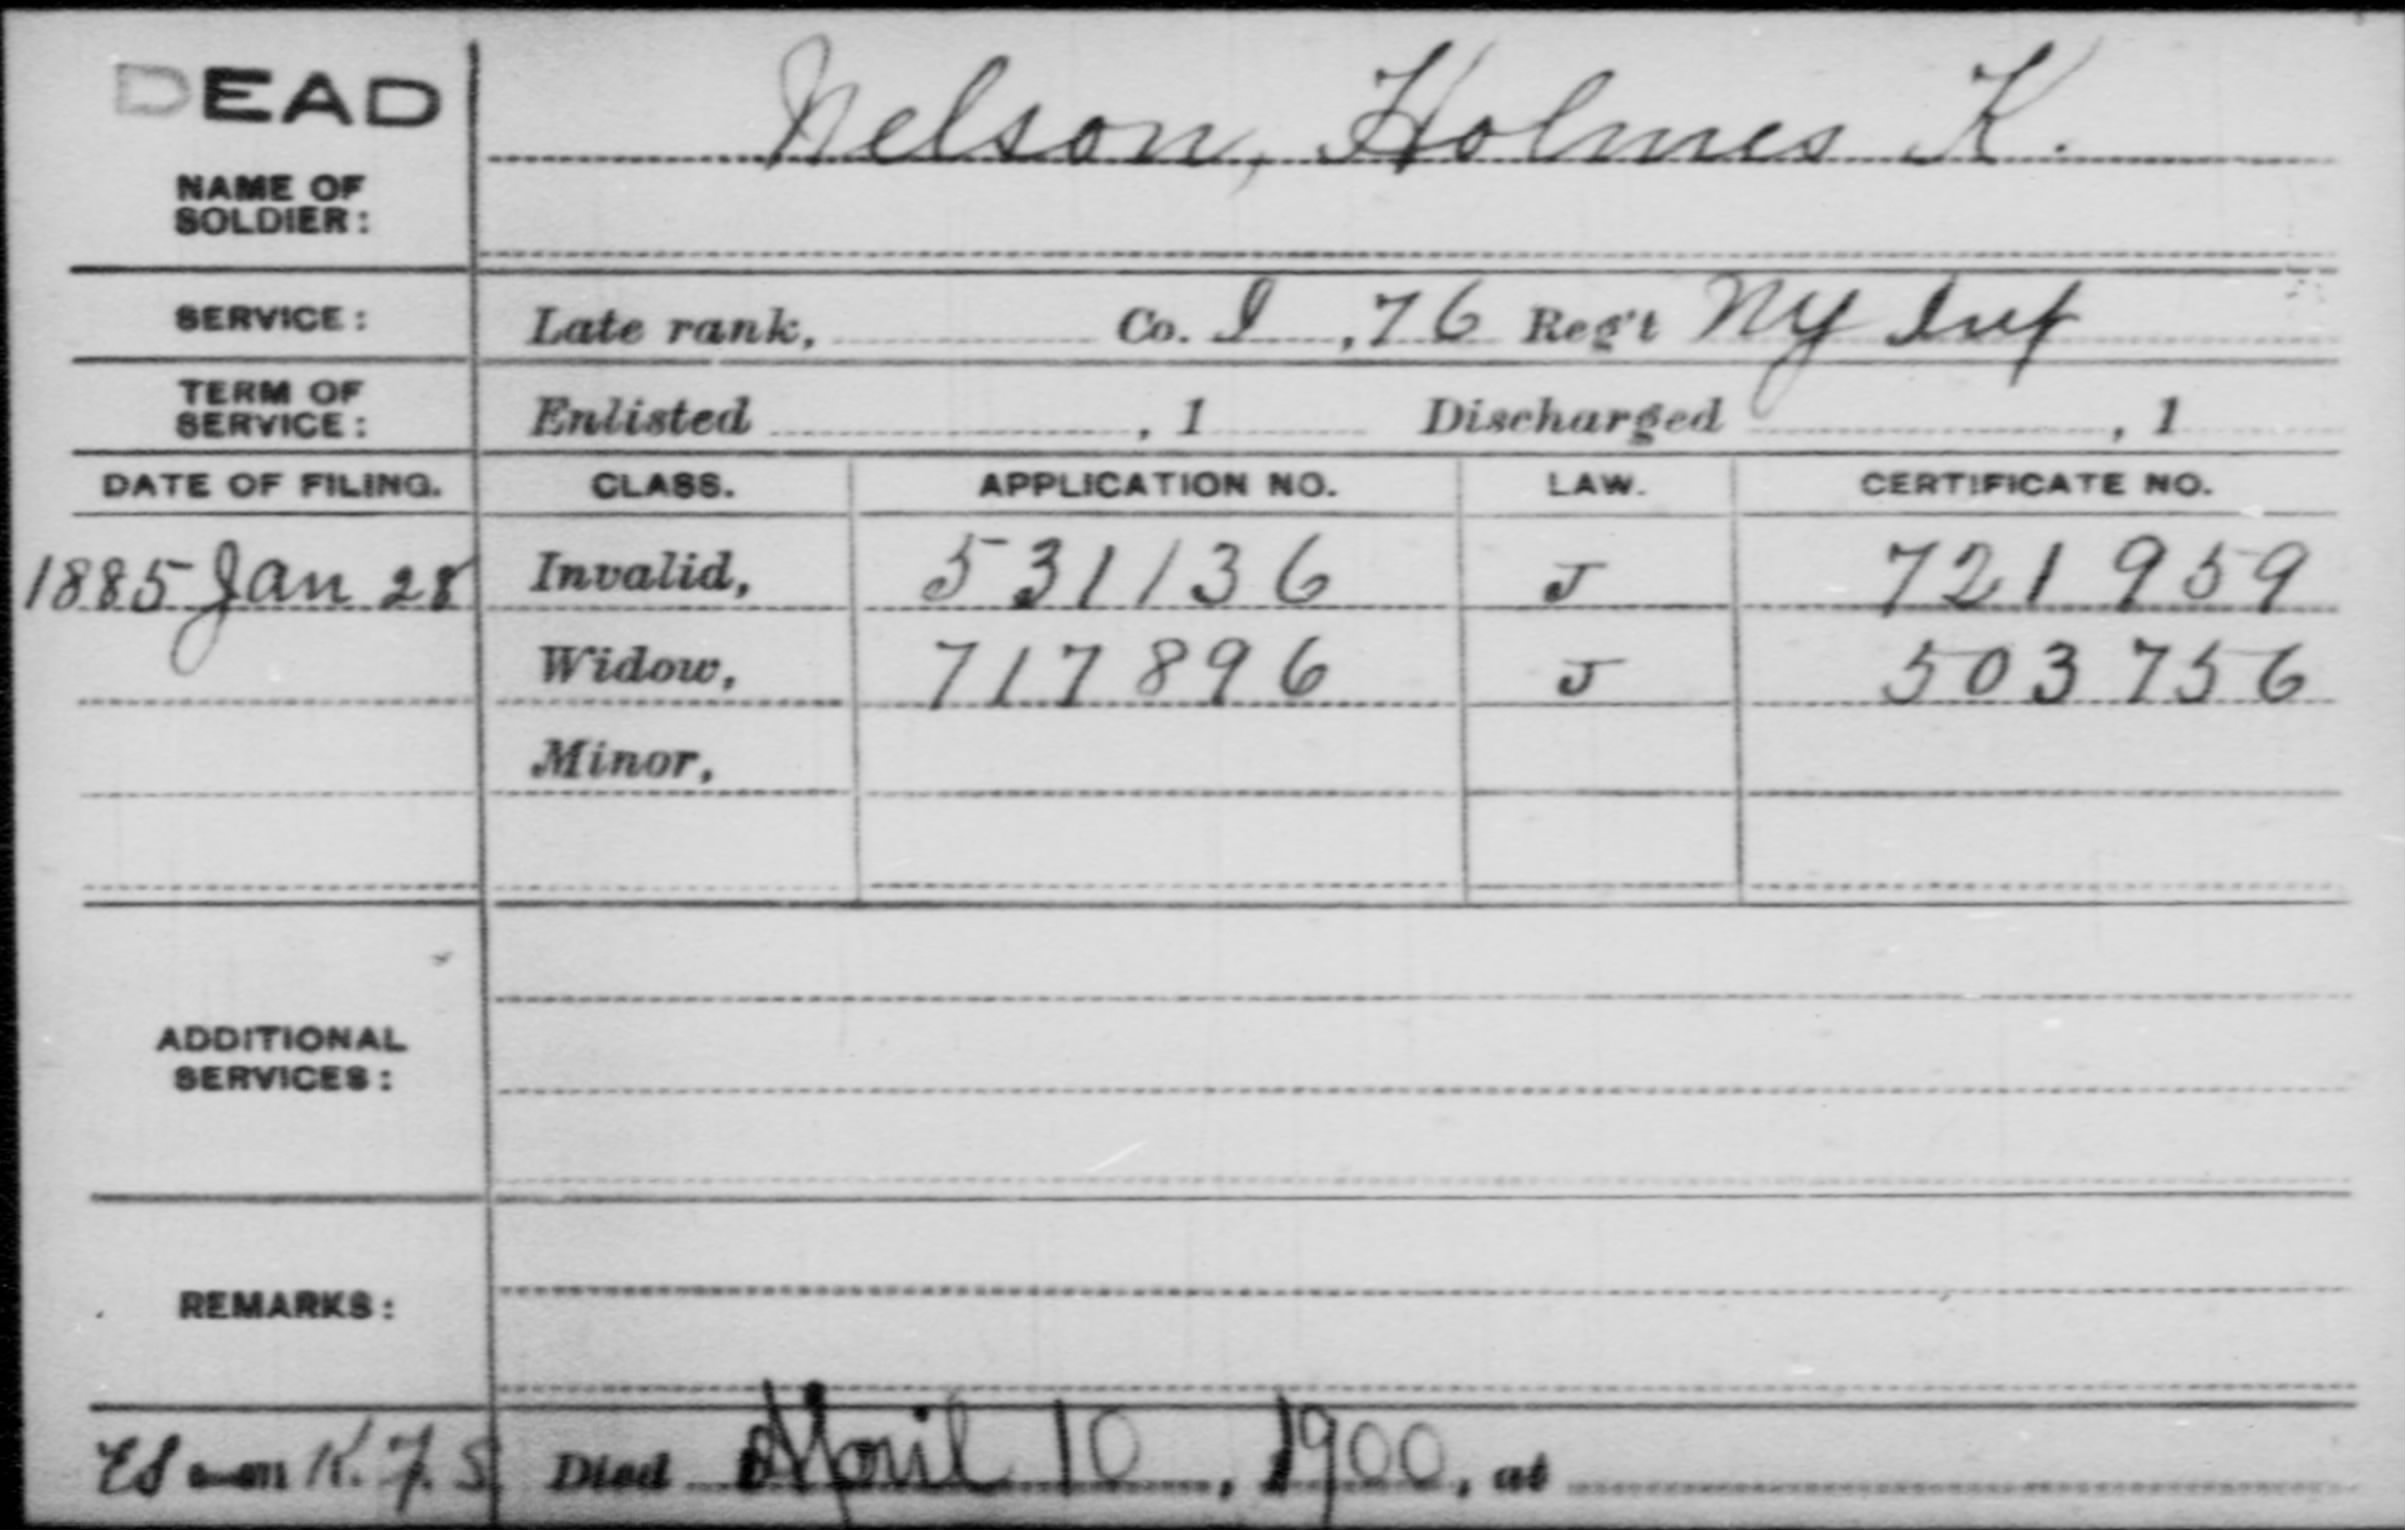 DEAD
Nelson, Holmes K.
NAME OF
SOLDIER:
SERVICE: Late rank, Co. I, 76 Reg't NY Inf
TERM OF
SERVICE: Enlisted , 1 Discharged , 1
DATE OF FILING. CLASS. APPLICATION NO. LAW. CERTIFICATE NO.
1885 Jan 28 Invalid, 531136 J 721959
Widow, 717896 J 503756
Minor,
ADDITIONAL
SERVICES:
REMARKS:
K. F. S. Died April 10, 1900, at